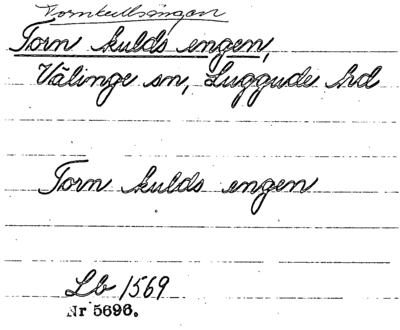 Tornkullsängen
Torn kulds engen,
Välinge sn, Luggude hd
Torn kulds engen
Lb 1569
Nr 5696.